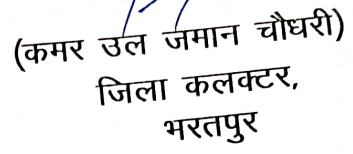 (कमर उल जमान चौधरी)
जिला कलक्टर,
भरतपुर